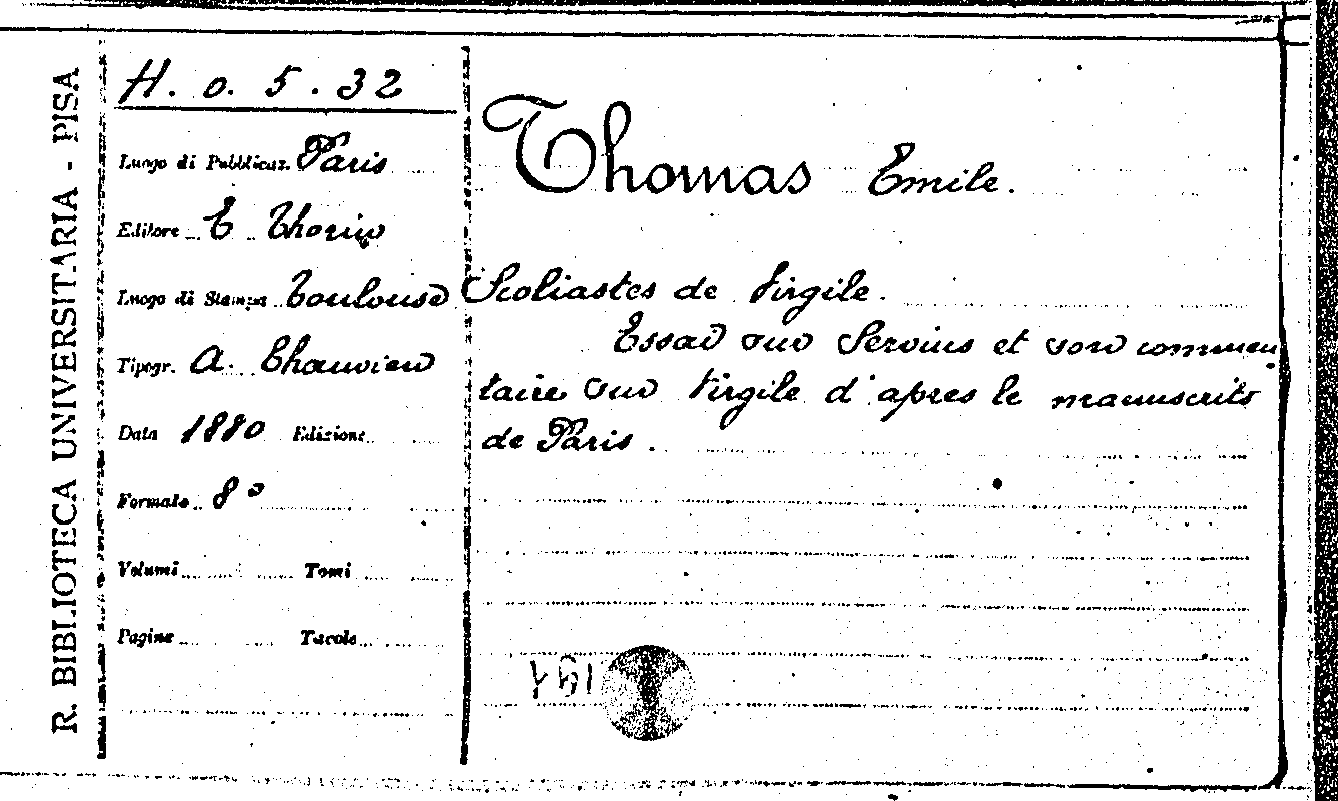 R. BIBLIOTECA UNIVERSITARIA - PISA
H. o. 5. 32
Luogo di Pubblicaz. Paris
Editore E Thorin
Luogo di Stampa Toulouse
Tipogr. A. Chauvin
Data 1880 Edizione
Formato 8°
Volumi Tomi
Pagine Tavole
Thomas Emile.
Scoliastes de Virgile.
Essai sur Servius et son commen
taire sur Virgile d'apres le manuscrits
de Paris.